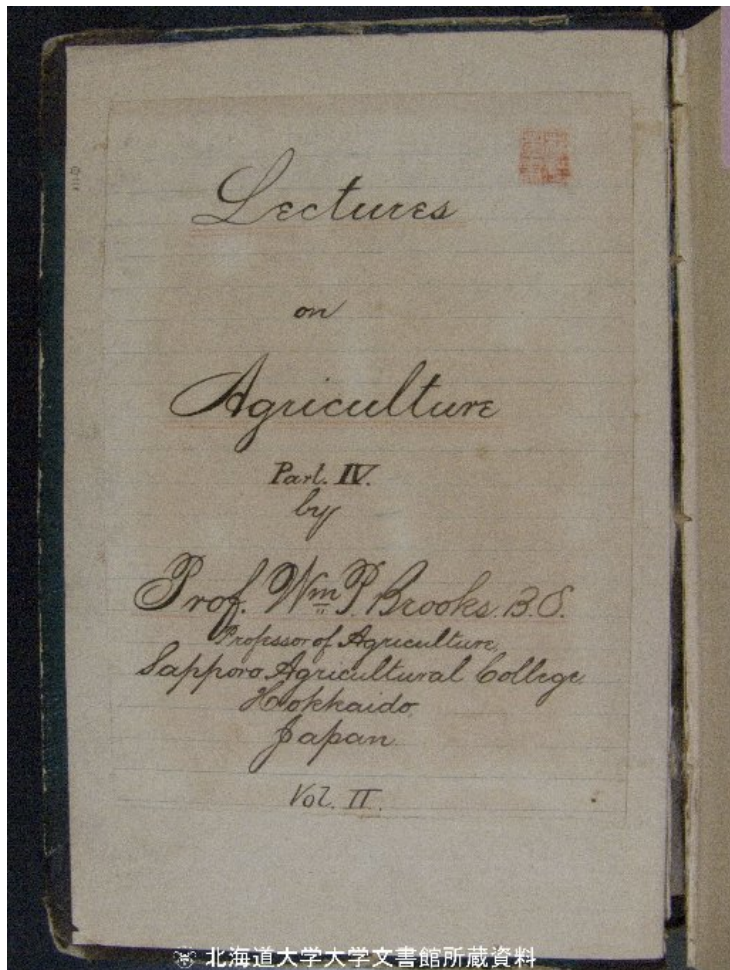 Lectures
on
Agriculture
Part. IV.
by
Prof. Wm P. Brooks. B.S.
Professor of Agriculture,
Sapporo Agricultural College
Hokkaido
Japan.
Vol. II.
北海道大学大学文書館所蔵資料